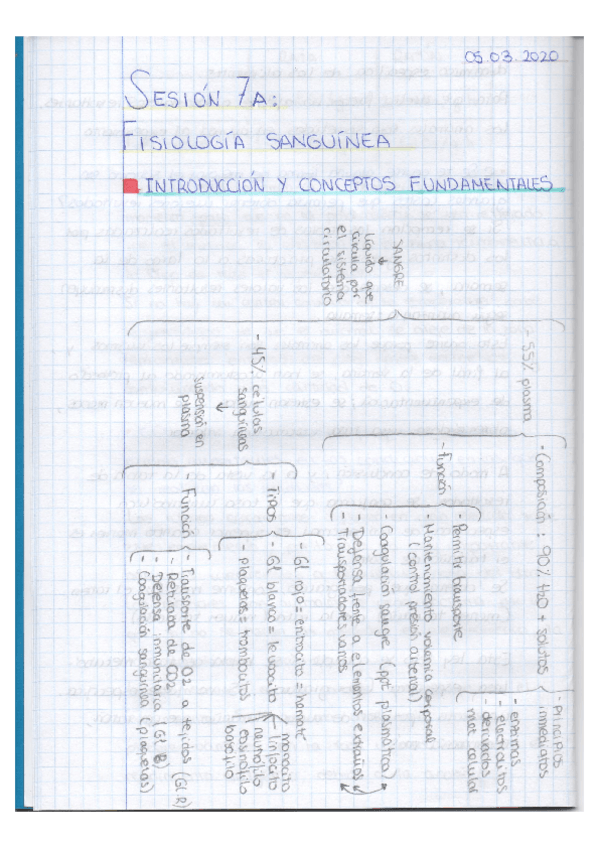 05.03.2020
SESIÓN 7A:
FISIOLOGÍA SANGUÍNEA
INTRODUCCIÓN Y CONCEPTOS FUNDAMENTALES
SANGRE
↓
líquido que
circula por
el sistema
circulatorio
- 55% plasma
- Composición: 90% H2O + solutos
- Principios
inmediatos
- enzimas
- electrolitos
- derivados
met celular
- Función
- Permitir transporte
- Mantenimiento volemia corporal
(control presión arterial)
- Coagulación sangre (ppt plasmática)
- Defensa frente a elementos extraños
- Transportadores varios
- 45% células
sanguíneas
↓
suspensión en
plasma
- Tipos
- Gl rojo = eritrocito = hematíe
- Gl blanco = leucocito
monocito
linfocito
neutrófilo
eosinófilo
basófilo
- plaquetas = trombocitos
- Función
- Transporte de O2 a tejidos (Gl. R)
- Retirada de CO2
- Defensa inmunitaria (Gl. B)
- Coagulación sanguínea (plaquetas)